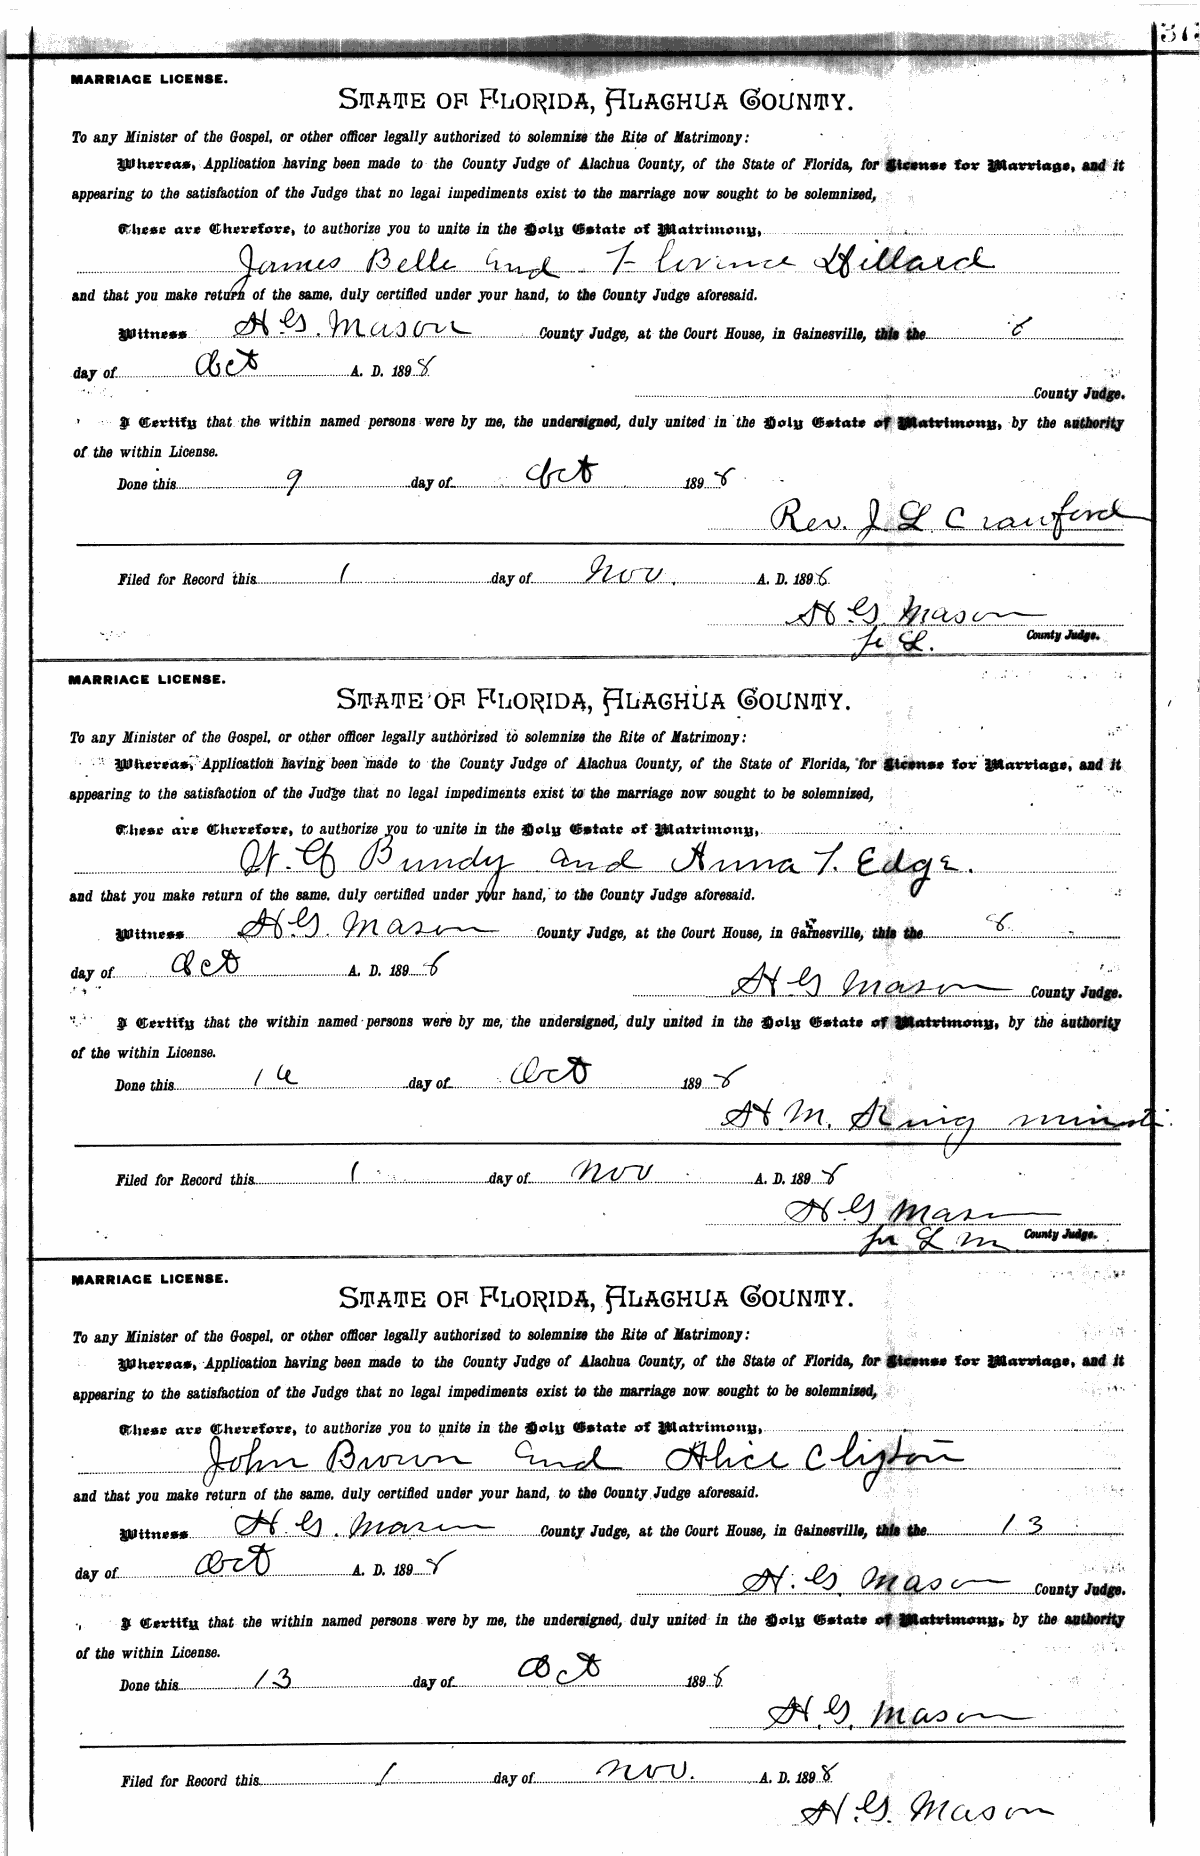 MARRIAGE LICENSE.
STATE OF FLORIDA, ALACHUA COUNTY.
To any Minister of the Gospel, or other officer legally authorized to solemnize the Rite of Matrimony:
Whereas, Application having been made to the County Judge of Alachua County, of the State of Florida, for License for Marriage, and it
appearing to the satisfaction of the Judge that no legal impediments exist to the marriage now sought to be solemnized,
These are Therefore, to authorize you to unite in the Holy Estate of Matrimony,
James Belle and Florence Hillard
and that you make return of the same, duly certified under your hand, to the County Judge aforesaid.
Witness H. G. Mason County Judge, at the Court House, in Gainesville, this the 8
day of Oct A. D. 1898
County Judge.
I Certify that the within named persons were by me, the undersigned, duly united in the Holy Estate of Matrimony, by the authority
of the within License.
Done this 9 day of Oct 1898
Rev. J. L. Crawford
Filed for Record this 1 day of Nov. A. D. 1898
H G. Mason
County Judge.
MARRIAGE LICENSE.
STATE OF FLORIDA, ALACHUA COUNTY.
To any Minister of the Gospel, or other officer legally authorized to solemnize the Rite of Matrimony:
Whereas, Application having been made to the County Judge of Alachua County, of the State of Florida, for License for Marriage, and it
appearing to the satisfaction of the Judge that no legal impediments exist to the marriage now sought to be solemnized,
These are Therefore, to authorize you to unite in the Holy Estate of Matrimony,
Bundy and Anna T. Edge.
and that you make return of the same, duly certified under your hand, to the County Judge aforesaid.
Witness H. G. Mason County Judge, at the Court House, in Gainesville, this the 8
day of Oct A. D. 1898
H G Mason County Judge.
I Certify that the within named persons were by me, the undersigned, duly united in the Holy Estate of Matrimony, by the authority
of the within License.
Done this day of Oct 1898
H. M. King
Filed for Record this 1 day of Nov A. D. 1898
H G Mason
County Judge.
MARRIAGE LICENSE.
STATE OF FLORIDA, ALACHUA COUNTY.
To any Minister of the Gospel, or other officer legally authorized to solemnize the Rite of Matrimony:
Whereas, Application having been made to the County Judge of Alachua County, of the State of Florida, for License for Marriage, and it
appearing to the satisfaction of the Judge that no legal impediments exist to the marriage now sought to be solemnized,
These are Therefore, to authorize you to unite in the Holy Estate of Matrimony,
John Brown and Alice
and that you make return of the same, duly certified under your hand, to the County Judge aforesaid.
Witness H. G. Mason County Judge, at the Court House, in Gainesville, this the 13
day of Oct A. D. 1898
H. G. Mason County Judge.
I Certify that the within named persons were by me, the undersigned, duly united in the Holy Estate of Matrimony, by the authority
of the within License.
Done this 13 day of Oct 1898
H. G. Mason
Filed for Record this 1 day of Nov. A. D. 1898
H. G. Mason